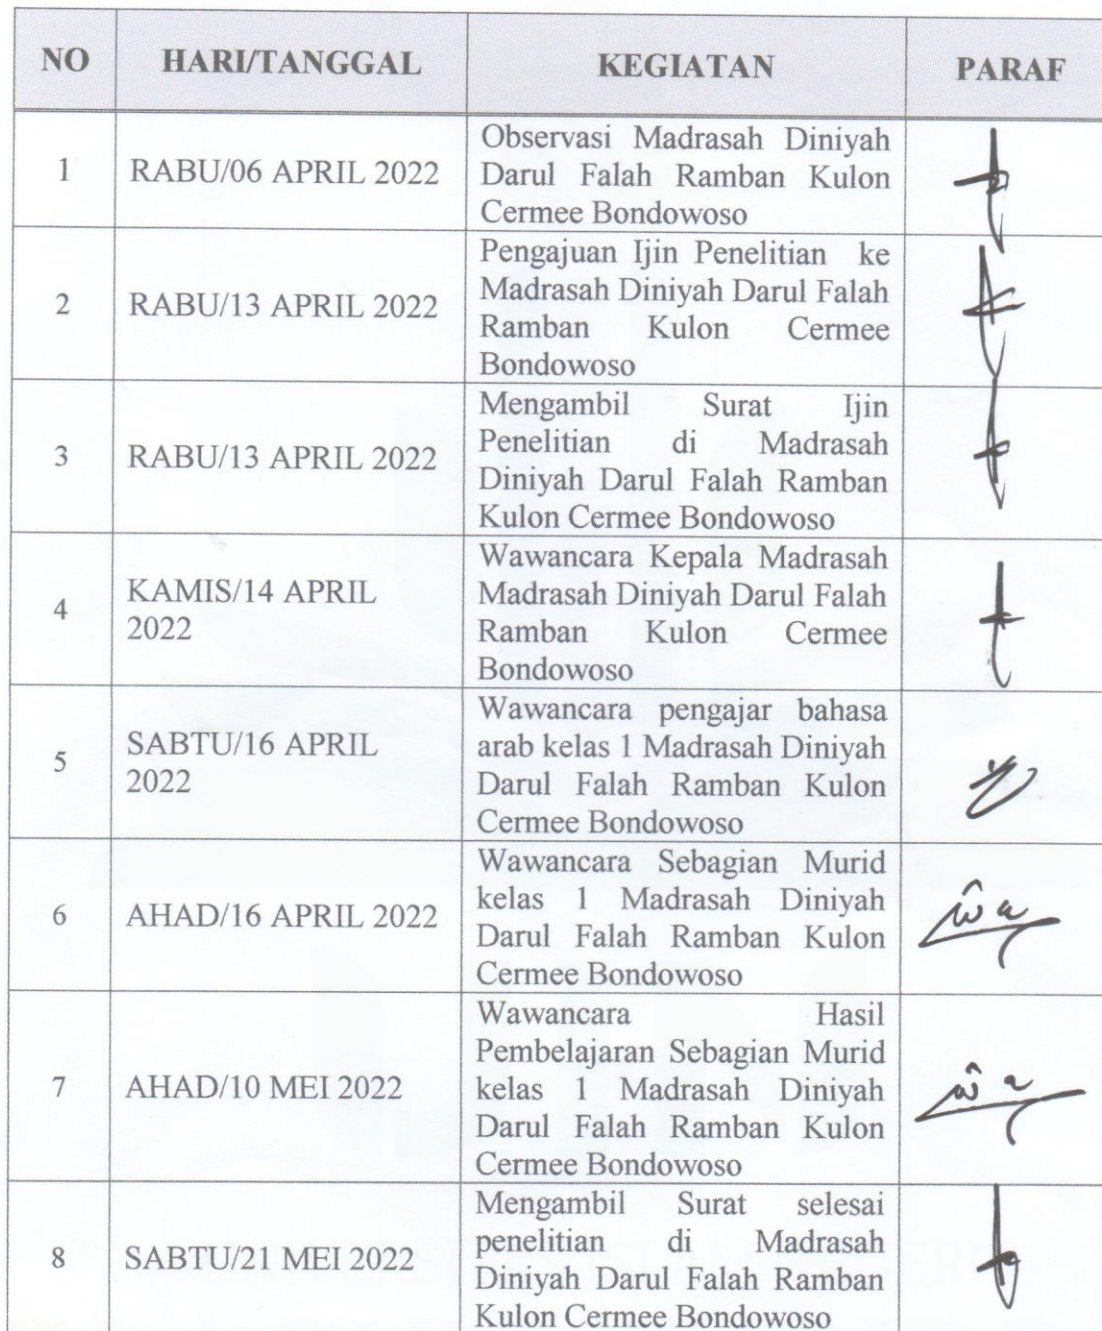 NO HARI/TANGGAL KEGIATAN PARAF
1 RABU/06 APRIL 2022 Observasi Madrasah Diniyah
Darul Falah Ramban Kulon
Cermee Bondowoso
2 RABU/13 APRIL 2022 Pengajuan Ijin Penelitian ke
Madrasah Diniyah Darul Falah
Ramban Kulon Cermee
Bondowoso
3 RABU/13 APRIL 2022 Mengambil Surat Ijin
Penelitian di Madrasah
Diniyah Darul Falah Ramban
Kulon Cermee Bondowoso
4 KAMIS/14 APRIL
2022
Wawancara Kepala Madrasah
Madrasah Diniyah Darul Falah
Ramban Kulon Cermee
Bondowoso
5 SABTU/16 APRIL
2022
Wawancara pengajar bahasa
arab kelas 1 Madrasah Diniyah
Darul Falah Ramban Kulon
Cermee Bondowoso
6 AHAD/16 APRIL 2022 Wawancara Sebagian Murid
kelas 1 Madrasah Diniyah
Darul Falah Ramban Kulon
Cermee Bondowoso
7 AHAD/10 MEI 2022 Wawancara Hasil
Pembelajaran Sebagian Murid
kelas 1 Madrasah Diniyah
Darul Falah Ramban Kulon
Cermee Bondowoso
8 SABTU/21 MEI 2022 Mengambil Surat selesai
penelitian di Madrasah
Diniyah Darul Falah Ramban
Kulon Cermee Bondowoso